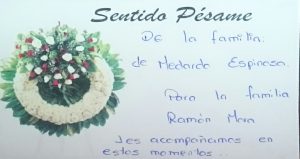 Sentido Pésame
De la familia:
de Medardo Espinosa.
Para la familia
Ramón Mora
les acompañamos en
estos momentos...